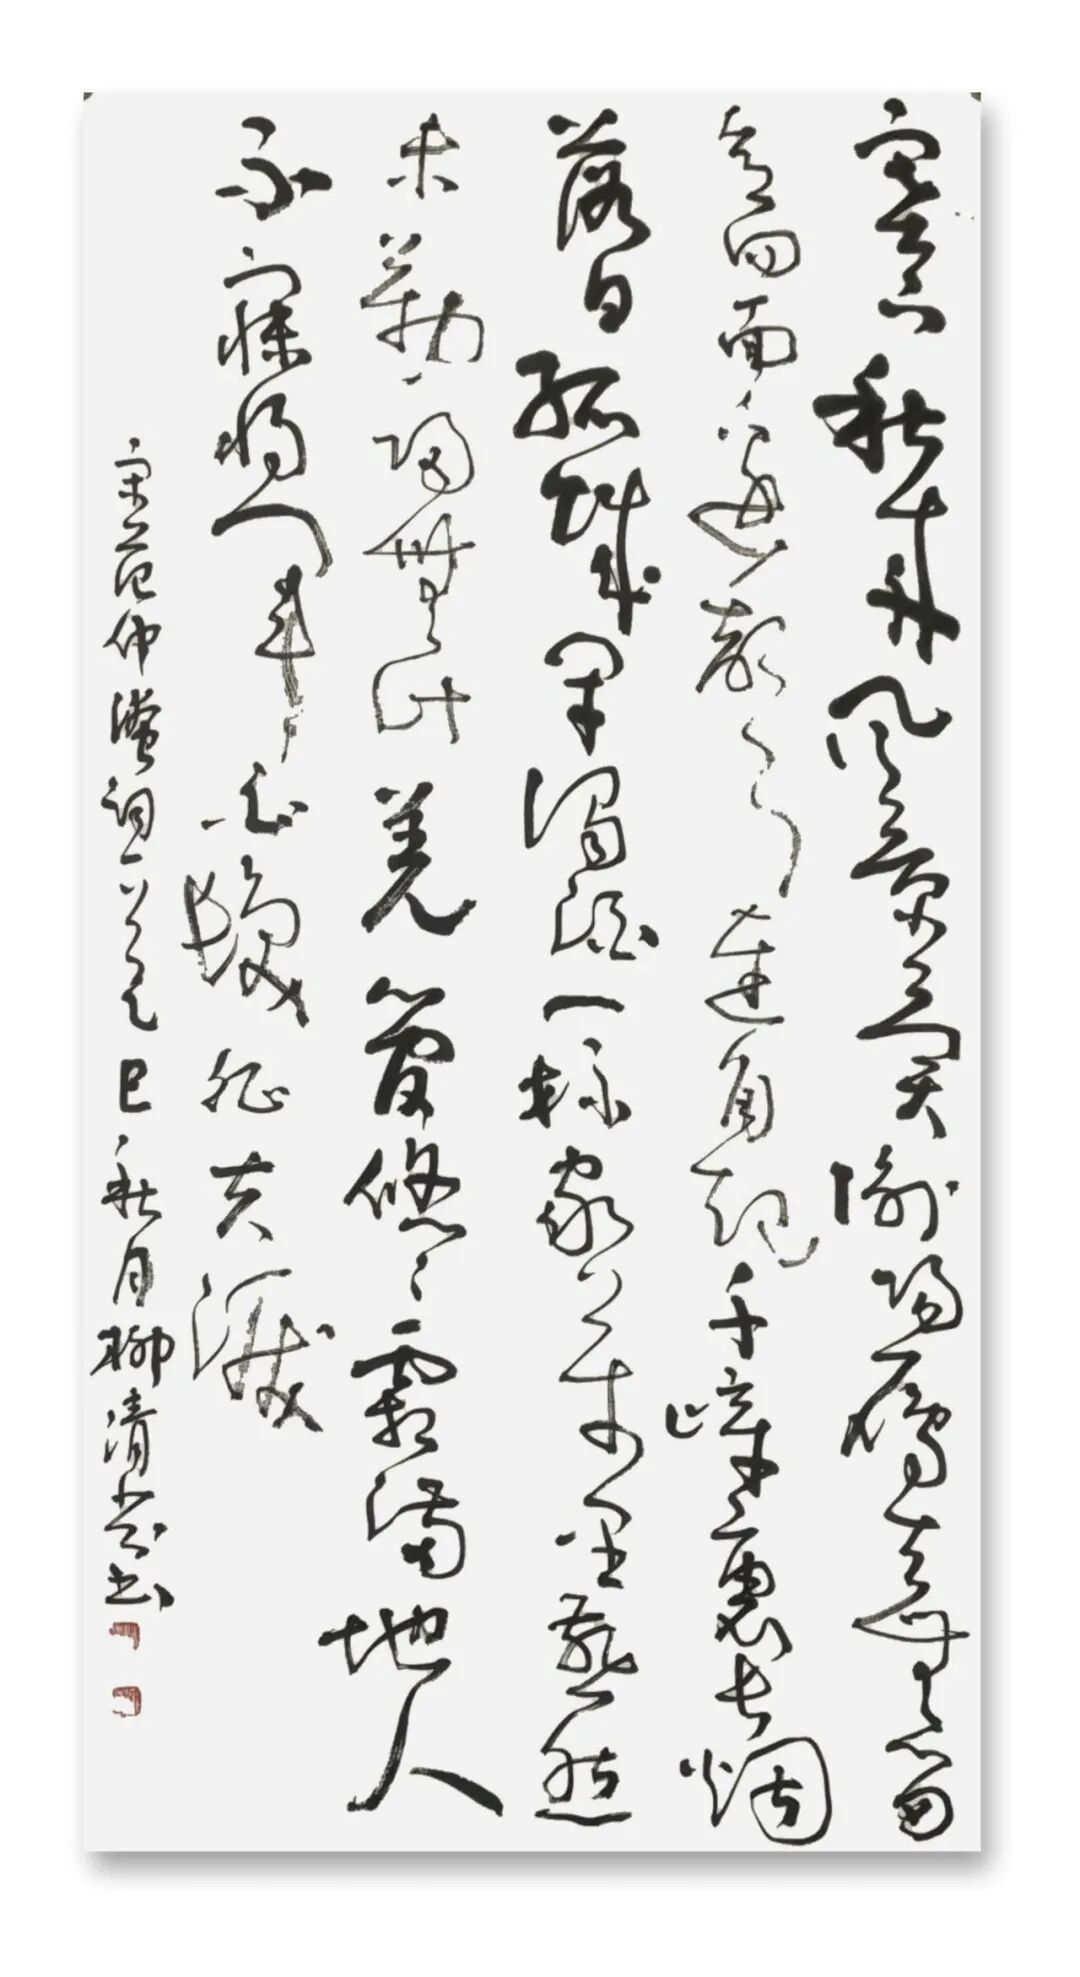 塞下秋来风景异衡阳雁去无留
意四面边声连角起千嶂裏长烟
落日孤城闭浊酒一杯家万里燕然
未勒归无计羌管悠悠霜满地人
不寐将军白发征夫泪
宋范仲淹词一首乙巳秋月柳清 书